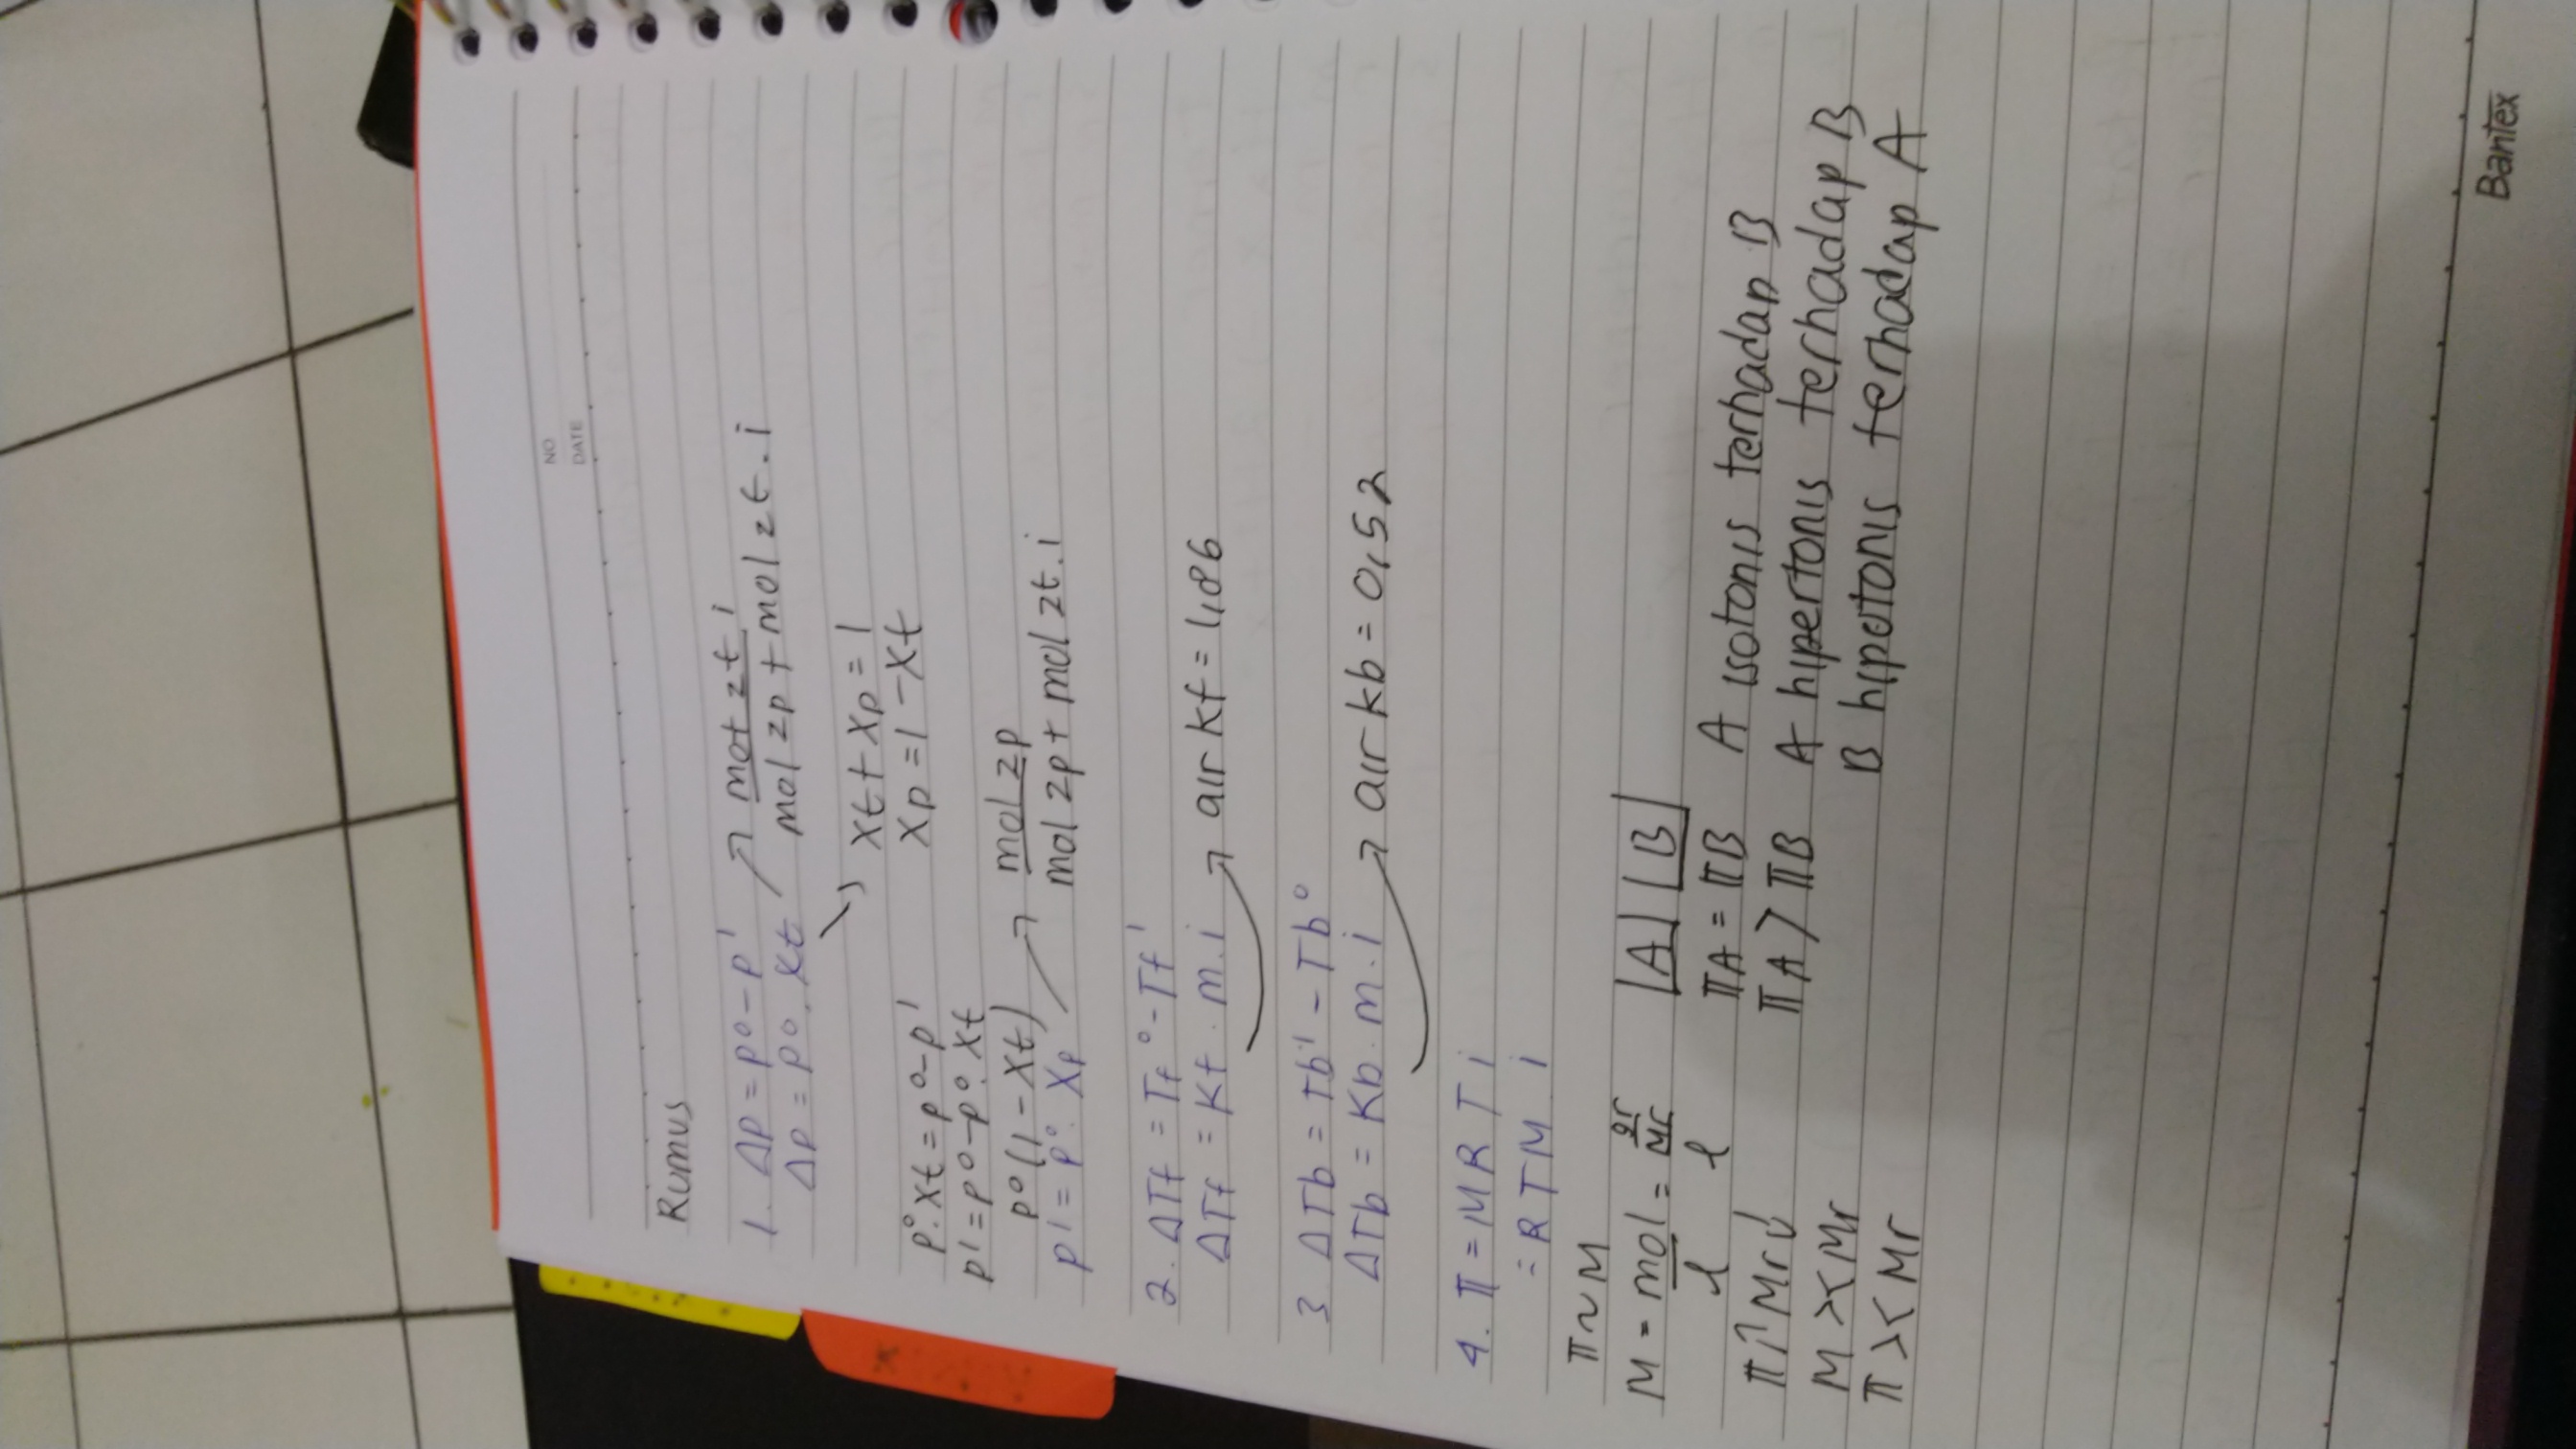 NO
DATE
Rumus
1. Δp = p° - p'
Δp = p°. Xt ↗ mot zt i / mol zp + mol zt. i
↘ Xt + Xp = 1
Xp = 1 - Xt
p°. Xt = p° - p'
p' = p° - p°. Xt
p° (1 - Xt)
p' = p°. Xp → mol zp / mol zp + mol zt. i
2. ΔTf = Tf° - Tf'
ΔTf = Kf . m. i → air kf = 1,86
3 ΔTb = Tb' - Tb°
ΔTb = Kb. m. i → air kb = 0,52
4. π = M R T i
= R T M . i
π ~ M
M = mol / l = gr/Mr / l
π↑ Mr↓
M >< Mr
π >< Mr
|A| |B|
πA = πB A isotonis terhadap B
πA > πB A hipertonis terhadap B
B hipotonis terhadap A
Bantex